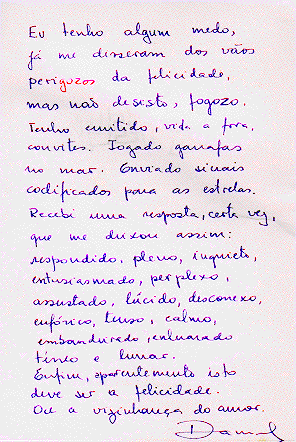 Eu tenho algum medo,
já me disseram dos vãos
perigozos da felicidade,
mas não desisto, fogozo.
Tenho emitido, vida a fora,
convites. Jogado garrafas
no mar. Enviado sinais
codificados para as estrelas.
Recebi uma resposta, certa vez,
que me deixou assim:
respondido, pleno, inquieto,
entusiasmado, perplexo,
assustado, lúcido, desconexo,
eufórico, tenso, calmo,
embandeirado, enluarado
tíneo e lunar.
Enfim, aparentemente isto
deve ser a felicidade.
Ou a vizinhança do amor.